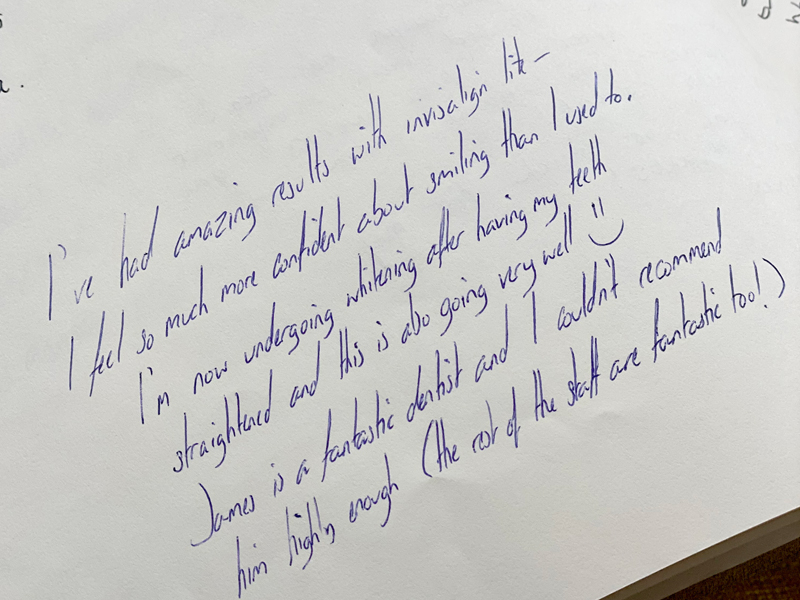 I've had amazing results with invisalign lite –
I feel so much more confident about smiling than I used to.
I'm now undergoing whitening after having my teeth
straightened and this is also going very well
James is a fantastic dentist and I couldn't recommend
him highly enough (the rest of the staff are fantastic too!)